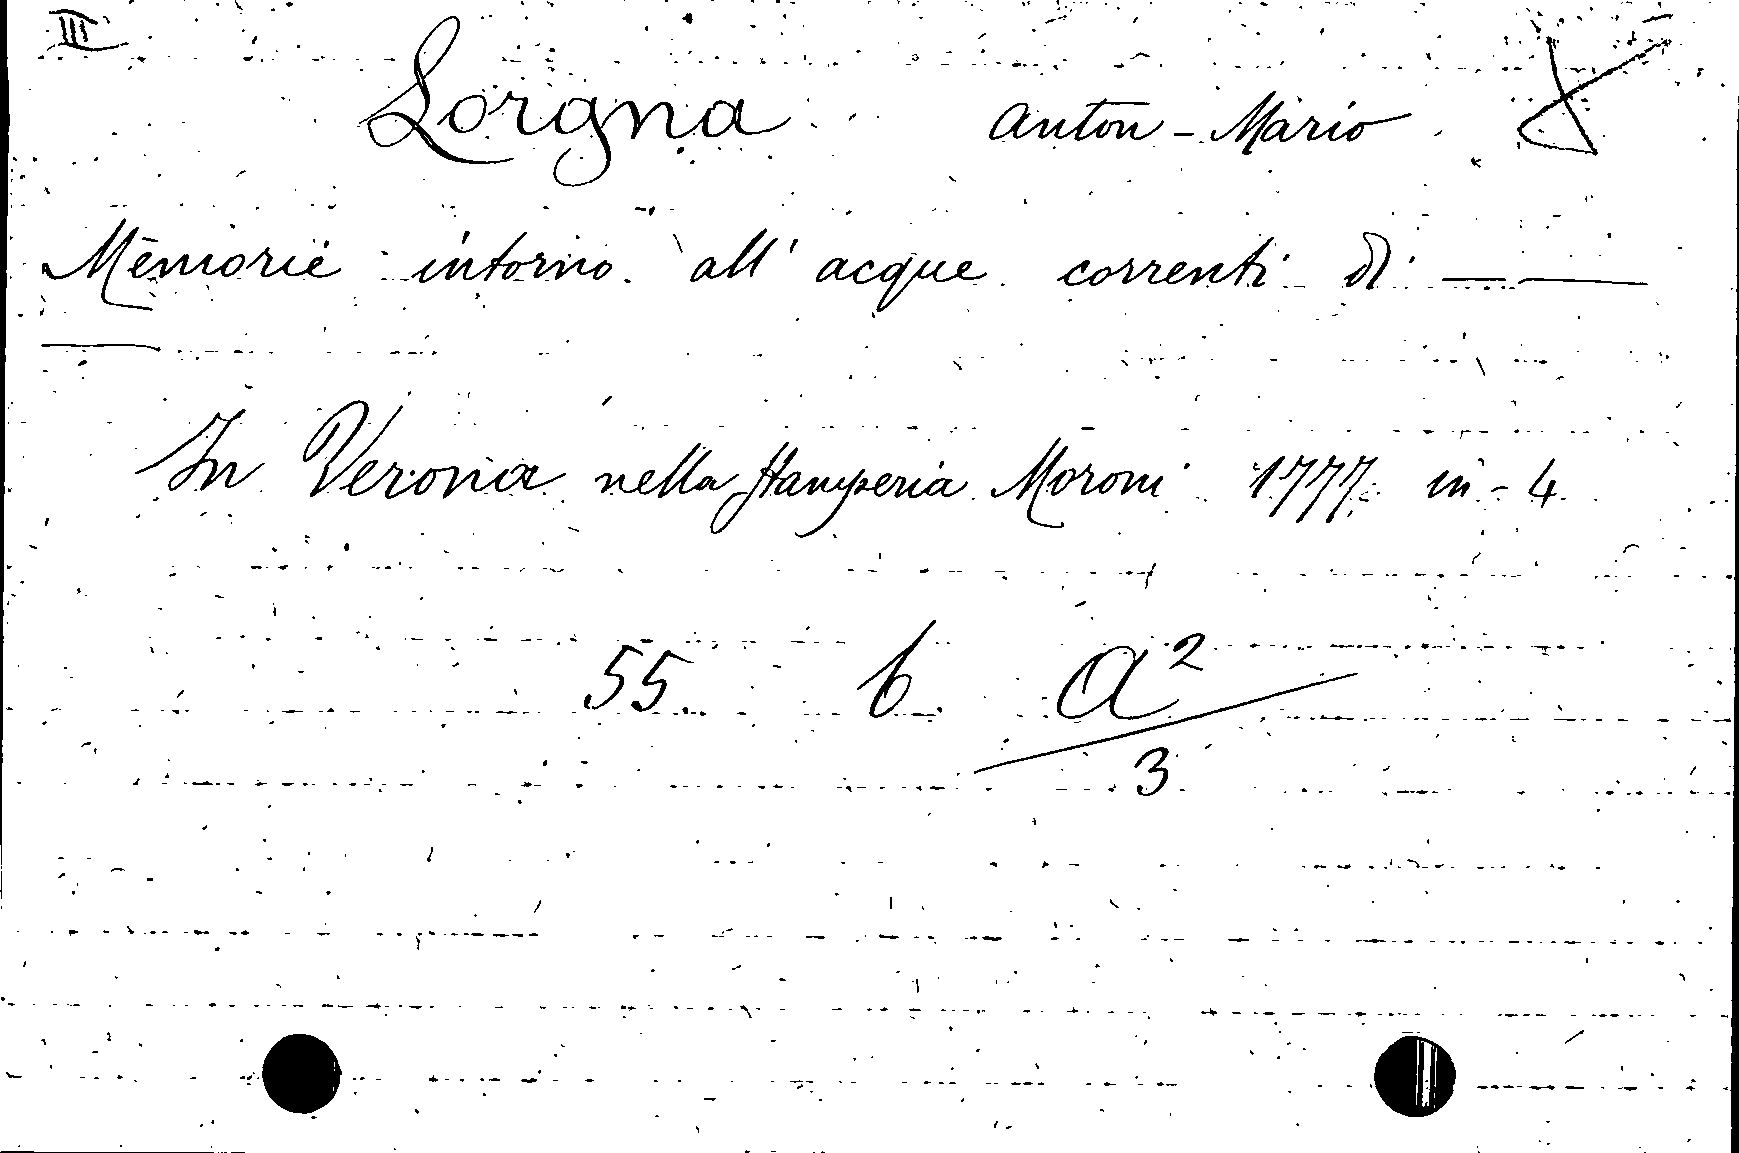 III
Lorgna Anton-Mario
Memorie intorno all' acque correnti di — —
—
In Verona nella Stamperia Moroni 1777 in-4
55. b. a²
3